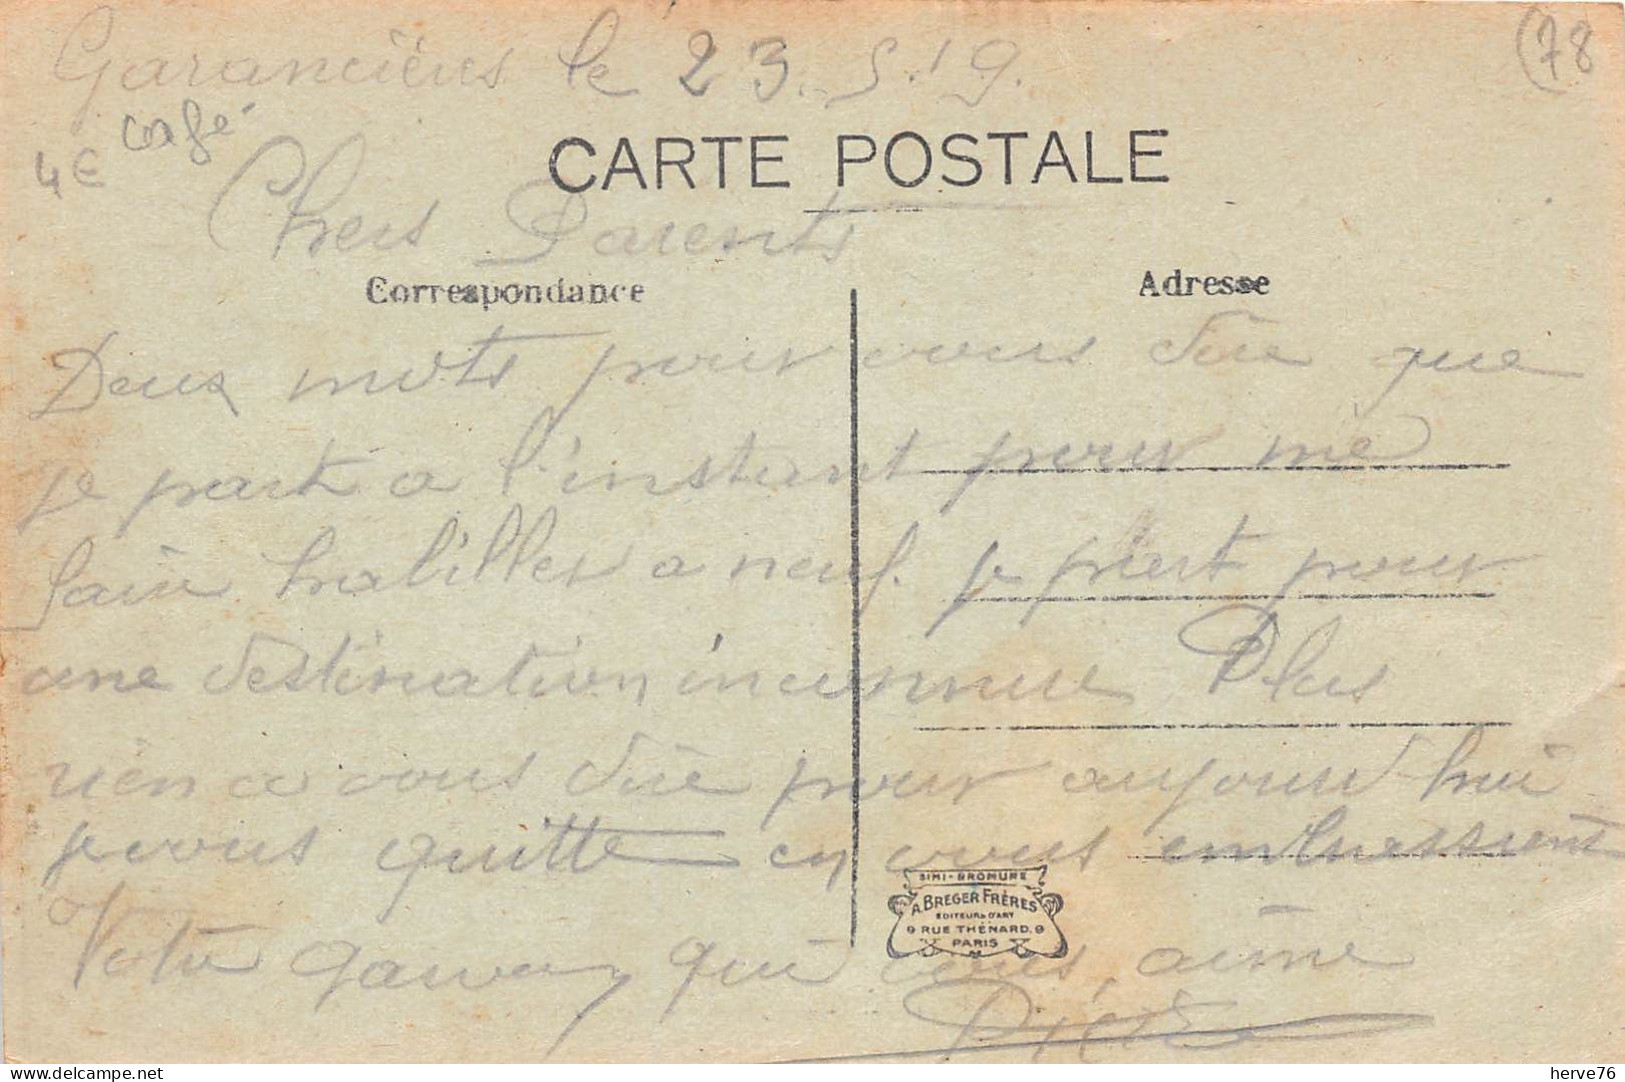 Garancières le 23.5.19.
(78
café
4€
CARTE POSTALE
Chers Parents
Correspondance
Adresse
Deux mots pour vous dire que
je part a l'instant pour me
faire habiller a neuf. je part pour
une destination inconnue Plus
rien a vous dire pour aujourd hui
je vous quitte en vous embrassent
SIMI-BROMURE
A. BREGER FRÈRES
EDITEURS D'ART
9 RUE THÉNARD. 9
PARIS
Votre garcon qui vous aime
Pierre
delcampe.net
herve76